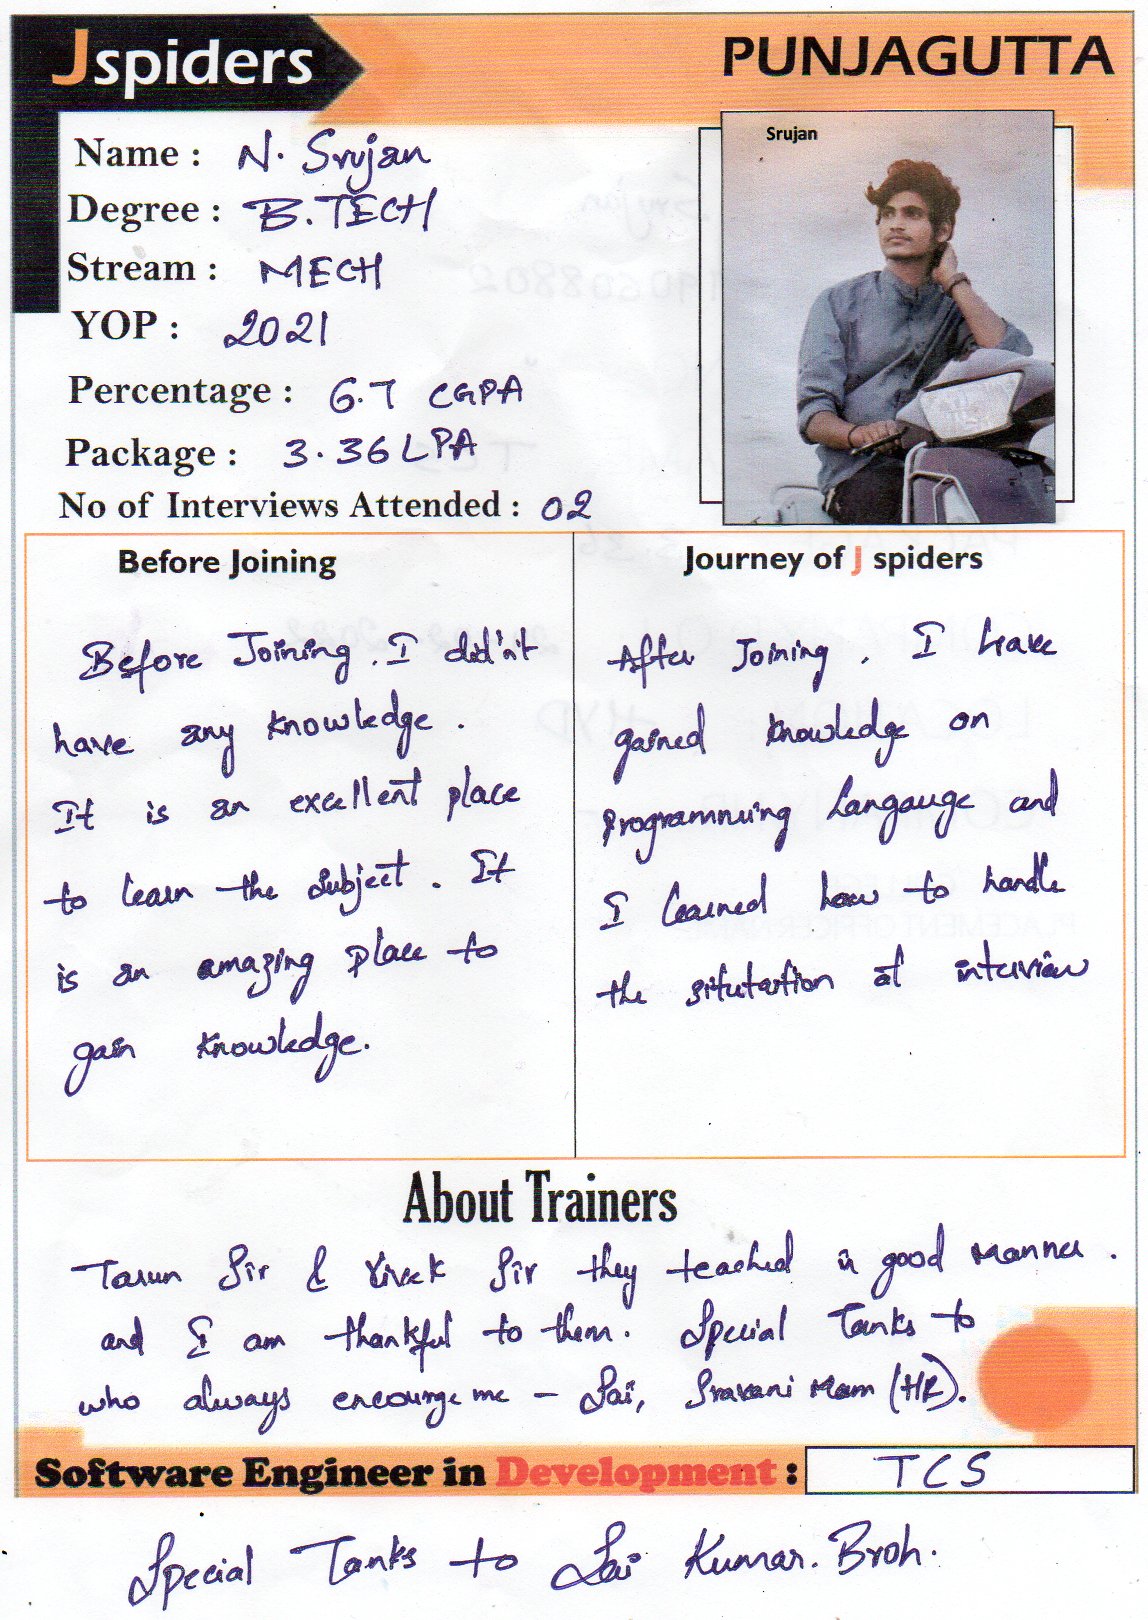 Jspiders
PUNJAGUTTA
Srujan
Name : N. Srujan
Degree : B.TECH
Stream : MECH
YOP : 2021
Percentage : 6.7 CGPA
Package : 3.36 LPA
No of Interviews Attended : 02
Before Joining
Before Joining. I didn't
have any knowledge.
It is an excellent place
to learn the subject. It
is an amazing place to
gain knowledge.
Journey of J spiders
After Joining, I have
gained knowledge on
programming Langauge and
I learned how to handle
the situtation at interview
About Trainers
Tarun Sir & Vivek Sir they teached in good manner.
and I am thankful to them. Special Tanks to
who always encourge me - Sai, Sravani Mam (HR).
Software Engineer in Development : TCS
Special Tanks to Sai Kumar. Broh.